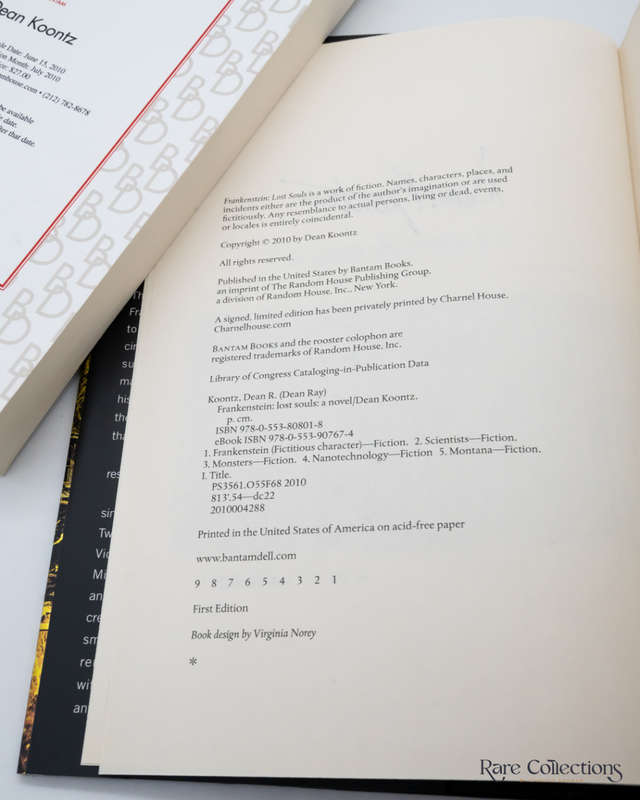 Dean Koontz
Date: June 15, 2010
Month: July 2010
$27.00
(212) 782-8678
be available
date.
after that date.
Frankenstein: Lost Souls is a work of fiction. Names, characters, places, and
incidents either are the product of the author's imagination or are used
fictitiously. Any resemblance to actual persons, living or dead, events,
or locales is entirely coincidental.
Copyright © 2010 by Dean Koontz
All rights reserved.
Published in the United States by Bantam Books,
an imprint of The Random House Publishing Group,
a division of Random House, Inc., New York.
A signed, limited edition has been privately printed by Charnel House.
Charnelhouse.com
BANTAM BOOKS and the rooster colophon are
registered trademarks of Random House, Inc.
Library of Congress Cataloging-in-Publication Data
Koontz, Dean R. (Dean Ray)
Frankenstein: lost souls: a novel/Dean Koontz.
p. cm.
ISBN 978-0-553-80801-8
eBook ISBN 978-0-553-90767-4
1. Frankenstein (Fictitious character)—Fiction. 2. Scientists—Fiction.
3. Monsters—Fiction. 4. Nanotechnology—Fiction 5. Montana—Fiction.
I. Title.
PS3561.O55F68 2010
813'.54—dc22
2010004288
Printed in the United States of America on acid-free paper
www.bantamdell.com
9 8 7 6 5 4 3 2 1
First Edition
Book design by Virginia Norey
*
Rare Collections